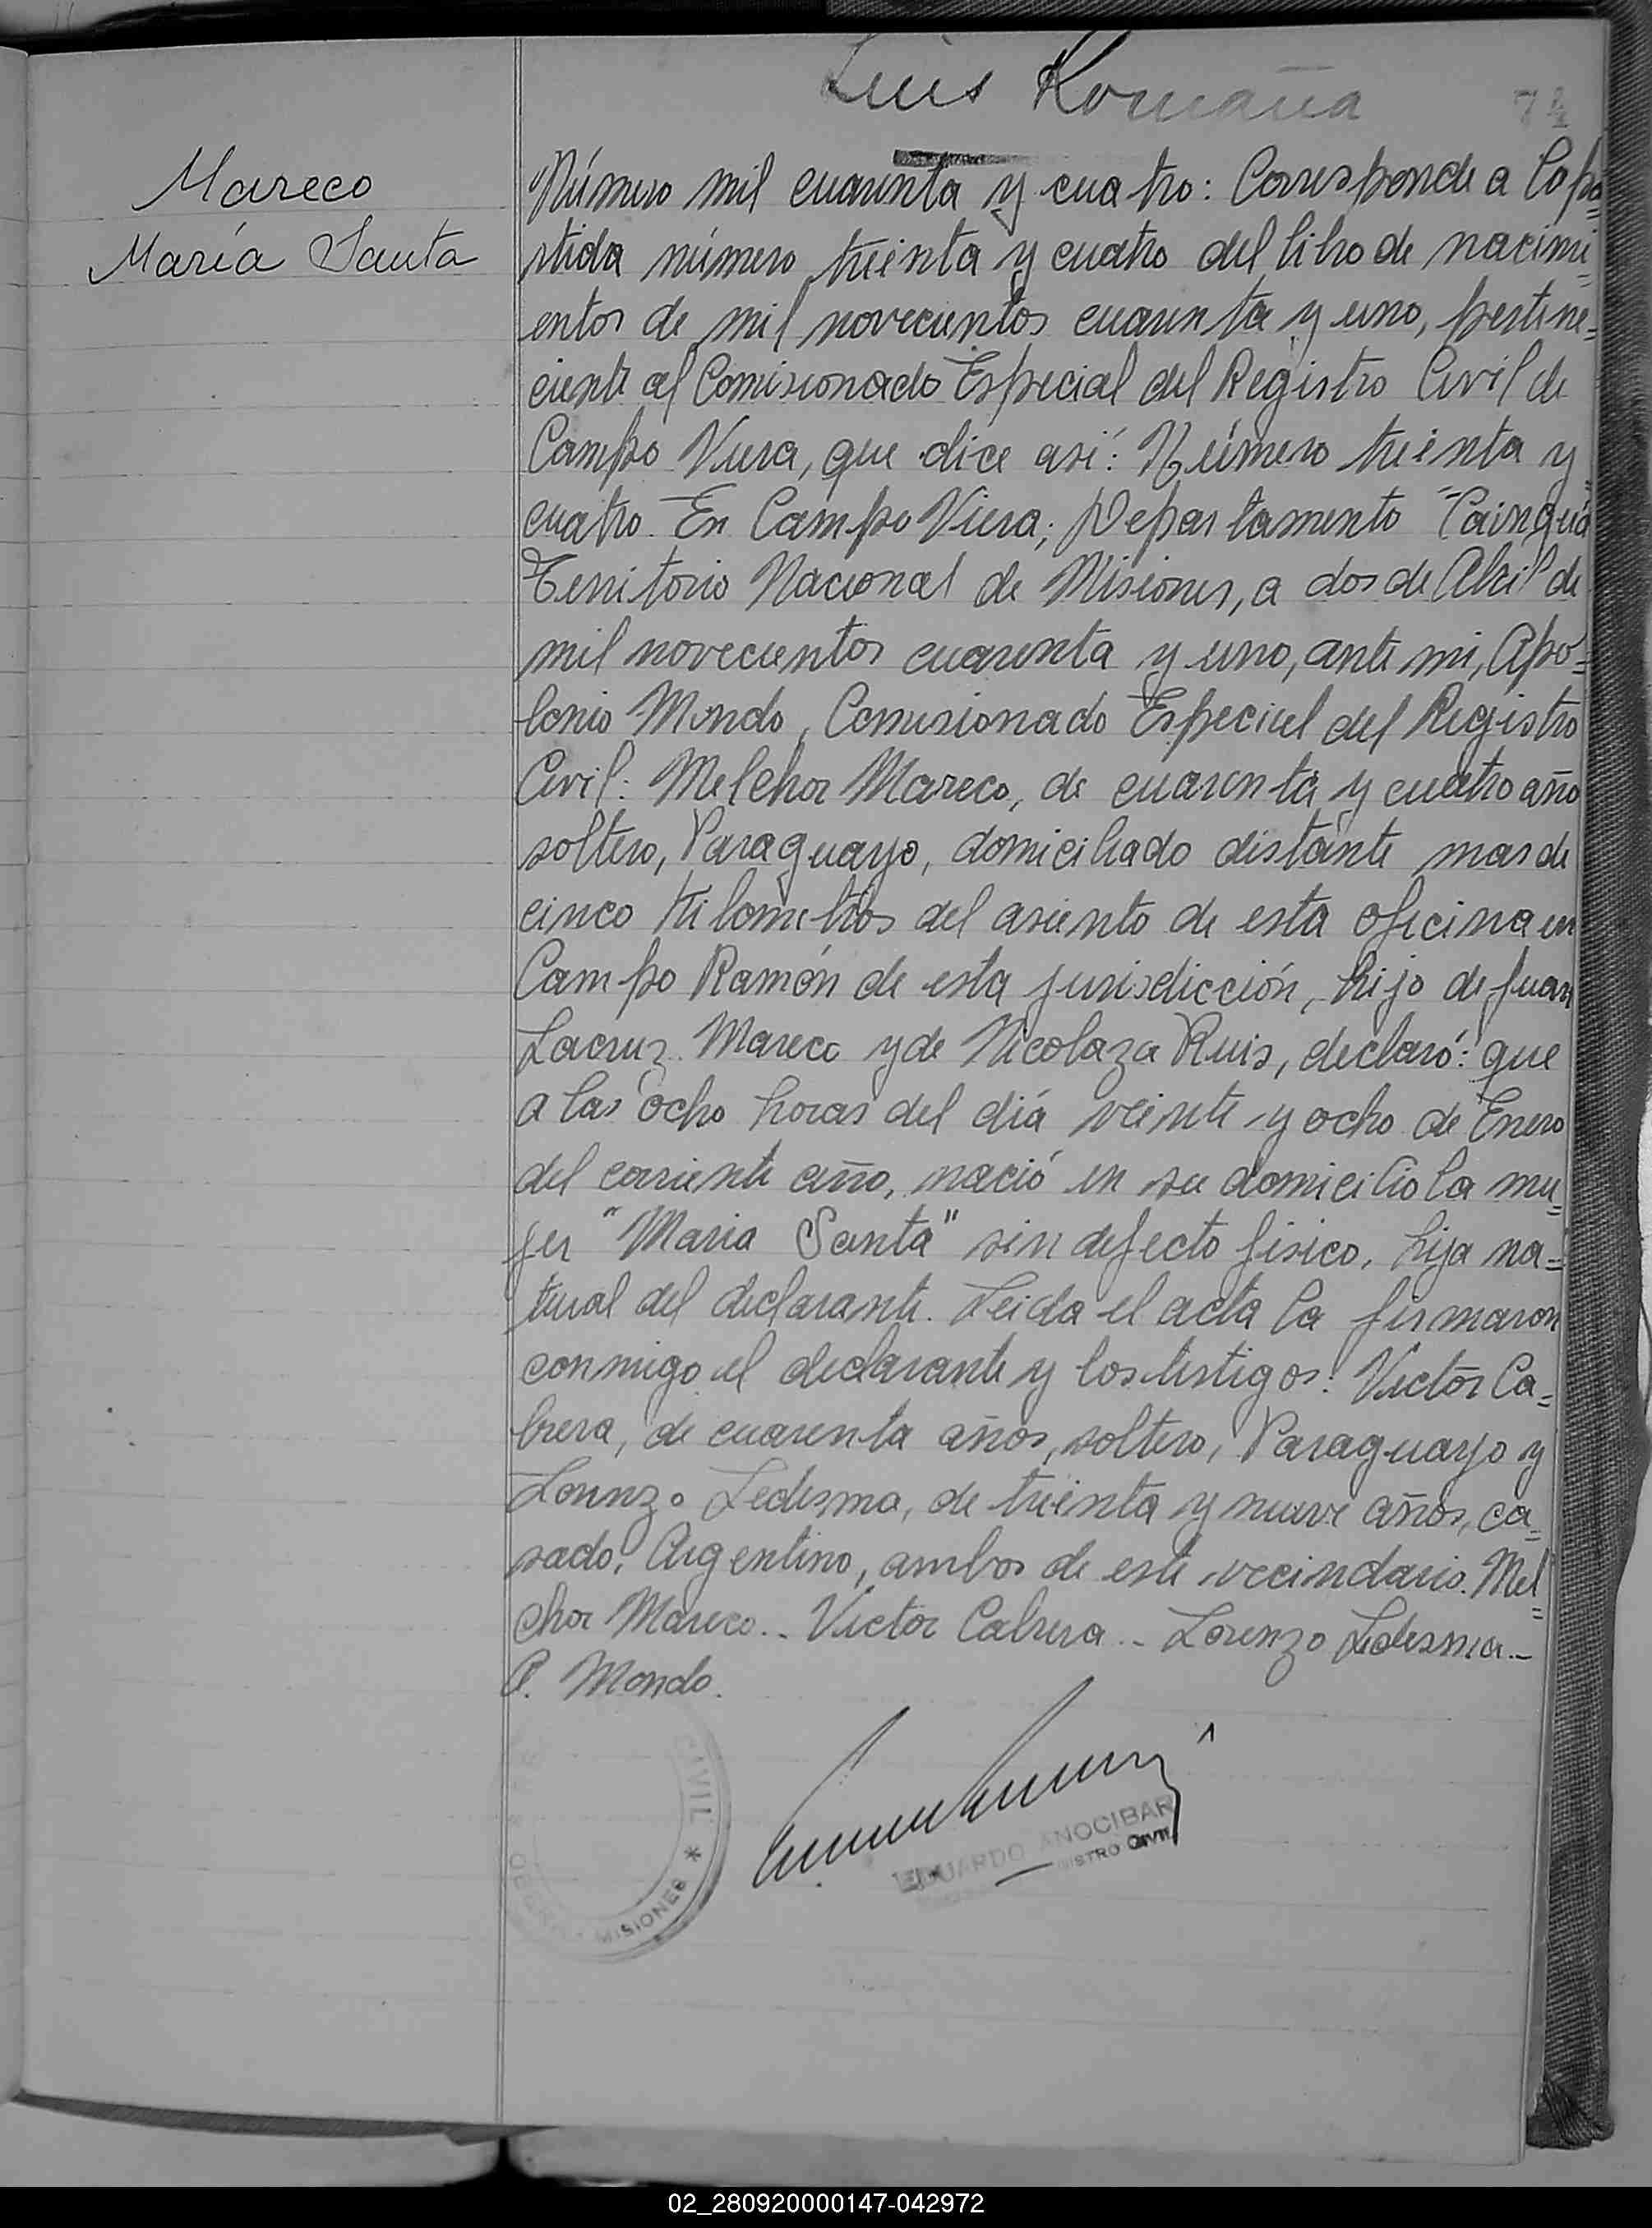 Luis Romaña
74
Mareco
María Santa
Número mil cuarenta y cuatro: Corresponde a la pa=
rtida número treinta y cuatro del libro de nacimi=
entos de mil novecientos cuarenta y uno, pertene=
ciente al Comisionado Especial del Registro Civil de
Campo Viera, que dice asi: Número treinta y
cuatro. En Campo Viera, Departamento "Cainguá
Territorio Nacional de Misiones, a dos de Abril de
mil novecientos cuarenta y uno, ante mi, Apo=
lonio Mondo, Comisionado Especial del Registro
Civil: Melchor Mareco, de cuarenta y cuatro año
soltero, Paraguayo, domiciliado distante mas de
cinco Kilometros del asiento de esta oficina en
Campo Ramón de esta jurisdicción, hijo de Juan
Lacruz Mareco y de Nicolaza Ruis, declaró: que
a las ocho horas del día veinte y ocho de Enero
del corriente año, nació en su domicilio la mu=
jer "Maria Santa" sin defecto fisico, hija na=
tural del declarante. Leida el acta la firmaron
conmigo el declarante y los testigos: Victor Ca=
brera, de cuarenta años, soltero, Paraguayo y
Lorenzo Ledesma, de treinta y nueve años, ca=
sado, Argentino, ambos de este vecindario. Mel=
chor Mareco.- Victor Cabrera.- Lorenzo Ledesma.-
A. Mondo.
CIVIL * MISIONES
EDUARDO ANOCIBAR
ISTRO CIVIL
02_280920000147-042972